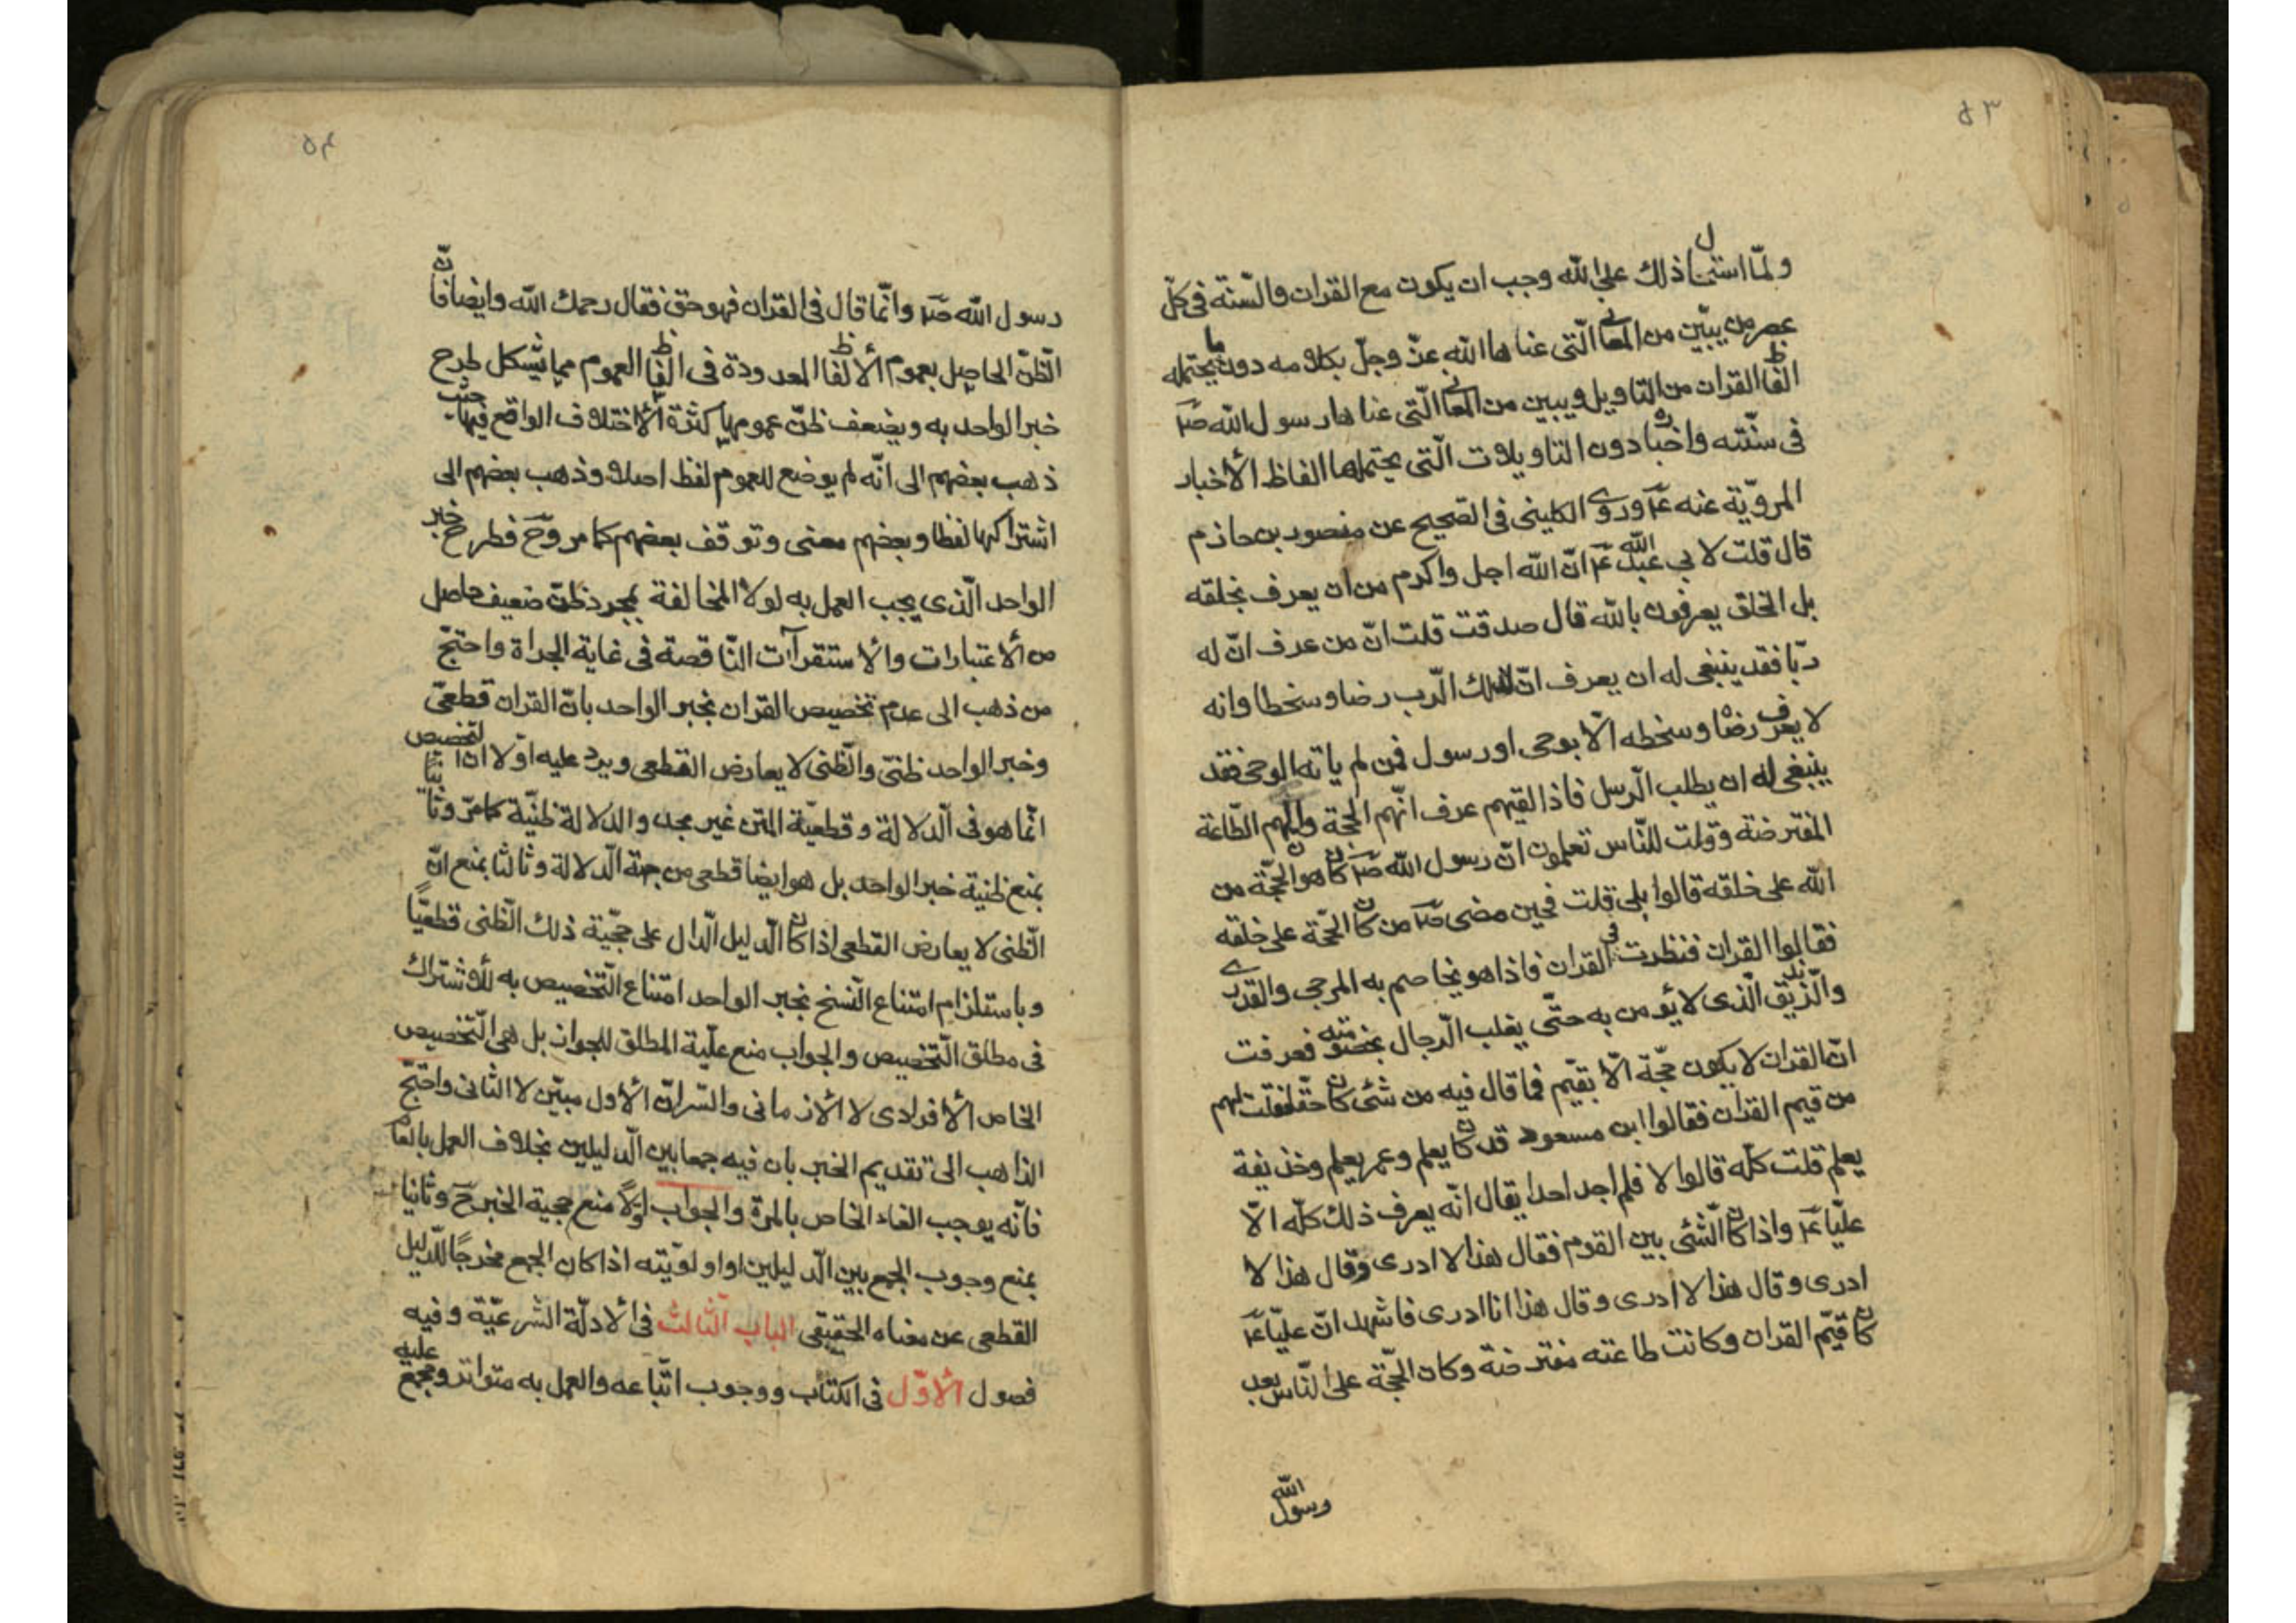 ٥٣
ولمّا استحال ذلك على الله وجب ان يكون مع القران والسّنة فى كلّ
عصر من يبيّن من المعانى الّتى عناها الله عزّ وجلّ بكلامه دون ما يحتمله
الفاظ القران من التاويل ويبين من المعانى الّتى عناها رسول الله ص
فى سنّته واخباره دون التاويلات الّتى يحتملها الفاظ الأخبار
المرويّة عنه ع وروى الكلينى فى الصّحيح عن منصور بن حازم
قال قلت لابى عبد الله ع انّ الله اجل واكرم من ان يعرف بخلقه
بل الخلق يعرفون بالله قال صدقت قلت انّ من عرف انّ له
ربّا فقد ينبغى له ان يعرف انّ لذلك الرّب رضا وسخطا وانه
لا يعرف رضاه وسخطه الّا بوحى او رسول فمن لم ياته الوحى فقد
ينبغى له ان يطلب الرّسل فاذا لقيهم عرف انّهم الحجّة وانّ لهم الطّاعة
المفترضة وقلت للنّاس تعلمون انّ رسول الله ص كان هو الحجّة من
الله على خلقه قالوا بلى قلت فحين مضى ص من كان الحجّة على خلقه
فقالوا القران فنظرت فى القران فاذا هو يخاصم به المرجى والقدرى
والزّنديق الّذى لا يؤمن به حتّى يغلب الرّجال بخصومته فعرفت
انّ القران لا يكون حجّة الّا بقيّم فما قال فيه من شئ كان حقّا فقلت لهم
من قيم القران فقالوا ابن مسعود قد كان يعلم وعمر يعلم وحذيفة
يعلم قلت كلّه قالوا لا فلم اجد احدا يقال انّه يعرف ذلك كلّه الّا
عليّا ع واذا كان الشّئ بين القوم فقال هذا لا ادرى وقال هذا لا
ادرى وقال هذا لا ادرى وقال هذا انا ادرى فاشهد انّ عليّا ع
كان قيّم القران وكانت طاعته مفترضة وكان الحجّة على النّاس بعد
رسول الله
٥٤
رسول الله ص وانّما قال فى القران فهو حق فقال رحمك الله وايضا فانّ
الظّنّ الحاصل بعموم الألفاظ المعدودة فى الفاظ العموم مما يشكل طرح
خبر الواحد به ويضعف ظنّ عمومها كثرة الأختلاف الواقع فيها حيث
ذهب بعضهم الى انّه لم يوضع للعموم لفظ اصلا وذهب بعضهم الى
اشتراكها لفظا وبعضهم معنى وتوقف بعضهم كما مر وح فطرح خبر
الواحد الّذى يجب العمل به لولا المخالفة بمجرد ظنّ ضعيف حاصل
من الأعتبارات والأستقرآت النّاقصة فى غاية الجراة واحتجّ
من ذهب الى عدم تخصيص القران بخبر الواحد بانّ القران قطعىّ
وخبر الواحد ظنّى والظّنى لا يعارض القطعى ويرد عليه اوّلا انّ التخصيص
انّما هو فى الدّلالة وقطعيّة المتن غير مجد والدلالة ظنيّة كما مرّ وثانيا
بمنع ظنية خبر الواحد بل هو ايضا قطعى من جهة الدّلالة وثالثا بمنع انّ
الظّنى لا يعارض القطعى اذا كان الدّليل الدّال على حجّية ذلك الظّنى قطعيّاً
وباستلزام امتناع النّسخ بخبر الواحد امتناع التّخصيص به للأشتراك
فى مطلق التّخصيص والجواب منع علّية المطلق للجواز بل هى التّخصيص
الخاص الأفرادى لا الأزمانى والسّر انّ الأول مبيّن لا الثانى واحتجّ
الذاهب الى تقديم الخبر بان فيه جمعا بين الدّليلين بخلاف العمل بالعام
فانّه يوجب الغاء الخاص بالمرّة والجواب اوّلاً منع حجية الخبر ح وثانيا
بمنع وجوب الجمع بين الدّليلين او اولويّته اذا كان الجمع مخرجًا للدّليل
القطعى عن معناه الحقيقى الباب الثّالث فى الادلّة الشّرعيّة وفيه
فصول الأوّل فى الكتاب ووجوب اتّباعه والعمل به متواتر ومجمع عليه